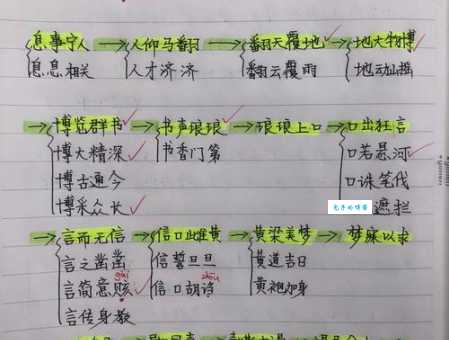 息事宁人 → 人仰马翻 → 翻天覆地 → 地大物博
息息相关 人才济济 翻云覆雨 地动山摇
→ 博览群书 → 书声琅琅 → 琅琅上口 → 口出狂言
博大精深 书香门第 口若悬河
博古通今 口诛笔伐
博采众长 遮拦
→ 言而无信 → 信口雌黄 → 黄粱美梦 → 梦寐以求
言之凿凿 信誓旦旦 黄道吉日
gāi zhōu
言简意赅 信口胡诌 黄袍加身
言传身教